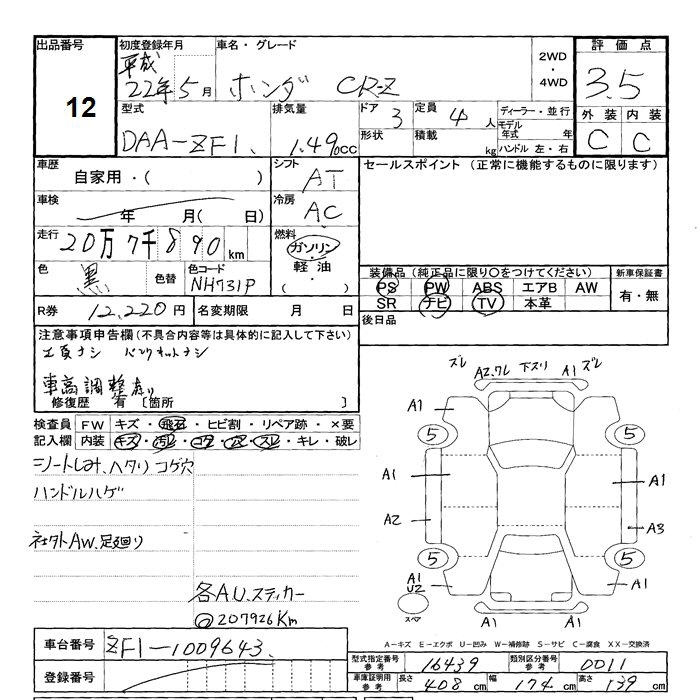 出品番号 12
初度登録年月 平成22年5月
車名・グレード ホンダ CR-Z
2WD ・ 4WD
評価点 3.5
外装 C 内装 C
型式 DAA-ZF1
排気量 1.49cc
ドア 3 形状
定員 4人 積載 kg
ディーラー・並行
モデル年式 年
ハンドル 左・右
車歴 自家用・( )
シフト AT
セールスポイント (正常に機能するものに限ります)
車検 年 月( 日)
冷房 AC
走行 20万7千890km
燃料 ガソリン・軽油・( )
色 黒 色替 色コード NH731P
装備品 (純正品に限り○をつけてください)
PS PW ABS エアB AW
SR ナビ TV 本革
新車保証書 有・無
R券 12,220円 名変期限 月 日
後日品
注意事項申告欄 (不具合内容等は具体的に記入して下さい)
工具ナシ パンクキットナシ
車高調整有り
修復歴 有 〔箇所 〕
検査員記入欄
FW キズ・飛石・ヒビ割・リペア跡・×要
内装 キズ・汚レ・コゲ・穴・スレ・キレ・破レ
シートしみ、ヘタリ コゲ穴
ハンドルハゲ
社外AW、足廻り
各AU.ステッカー
◎207926Km
ズレ A2.ワレ 下スリ A1 ズレ
A1
5 5
A1 A1
A2 A3
5 5
A1 U2 A1
スペア A1 A1
A-キズ E-エクボ U-凹み W-補修跡 S-サビ C-腐食 XX-交換済
車台番号 ZF1-1009643
登録番号
型式指定番号 参考 16439 類別区分番号 参考 0011
車庫証明用 参考 長さ 408cm 幅 174cm 高さ 139cm